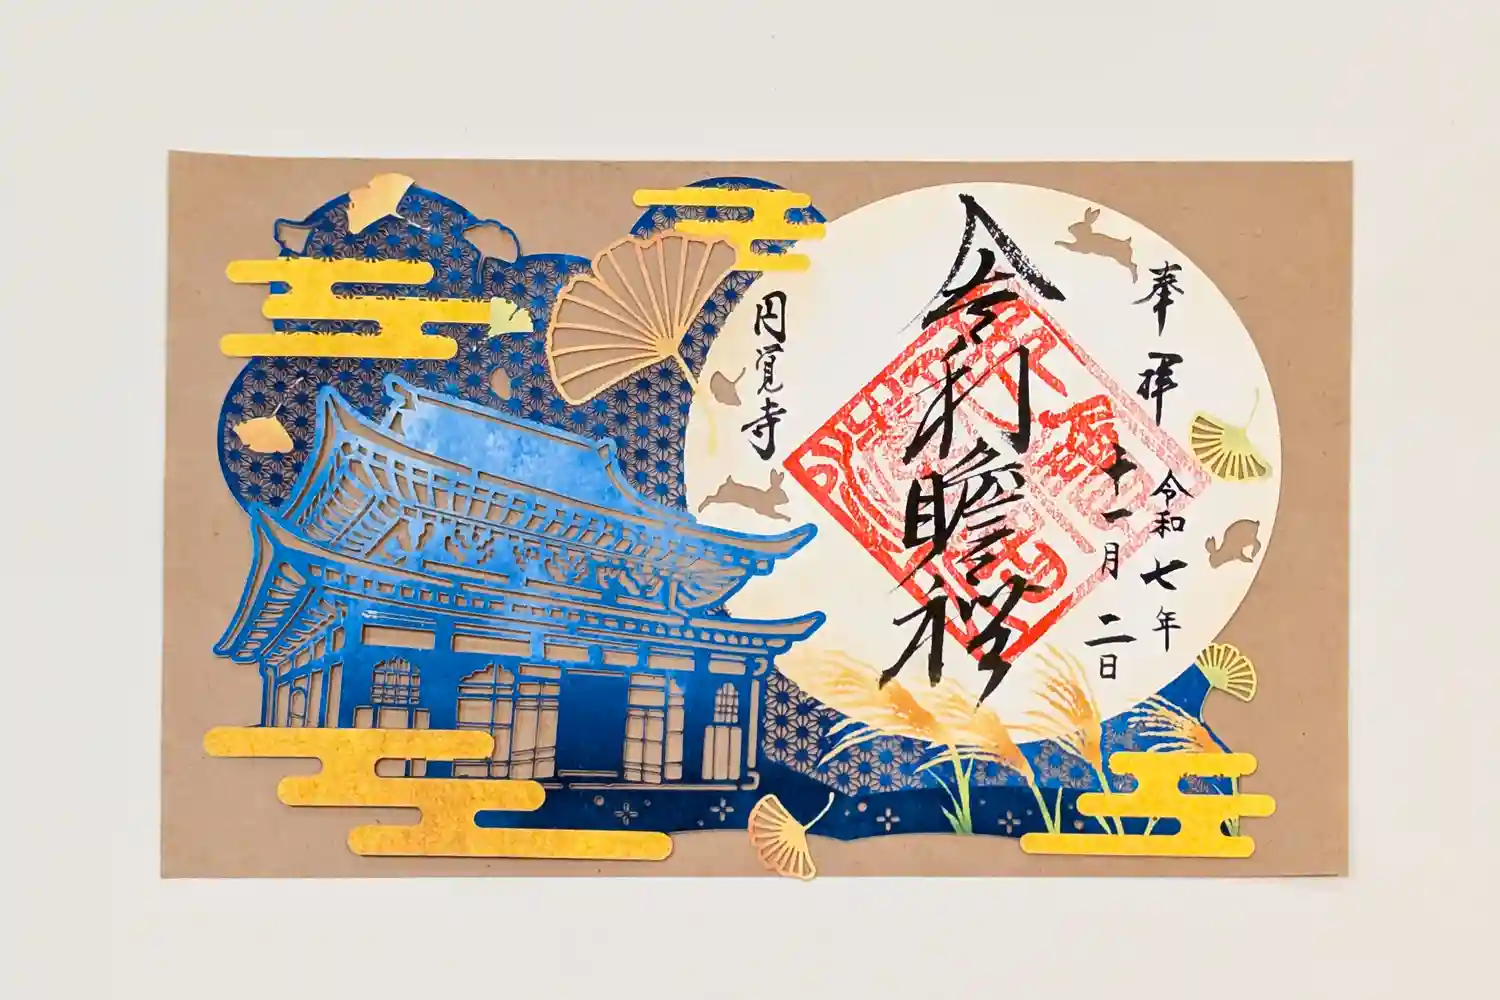 奉拝
令和七年
十一月二日
舎利瞻禮
円覚寺